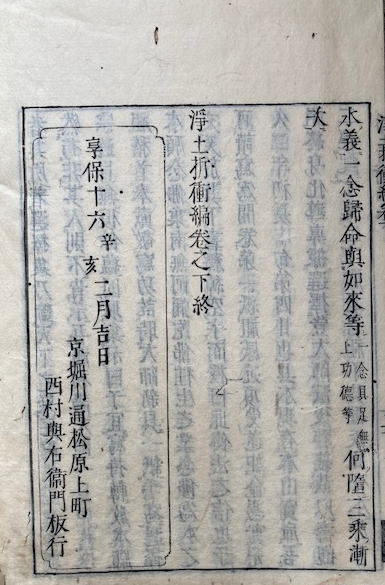 水義一念歸命與如來等一念具足無上功德等何隨三乘漸
大
淨土折衝編卷之下終
享保十六辛亥二月吉日
京堀川通松原上町
西村與右衞門板行